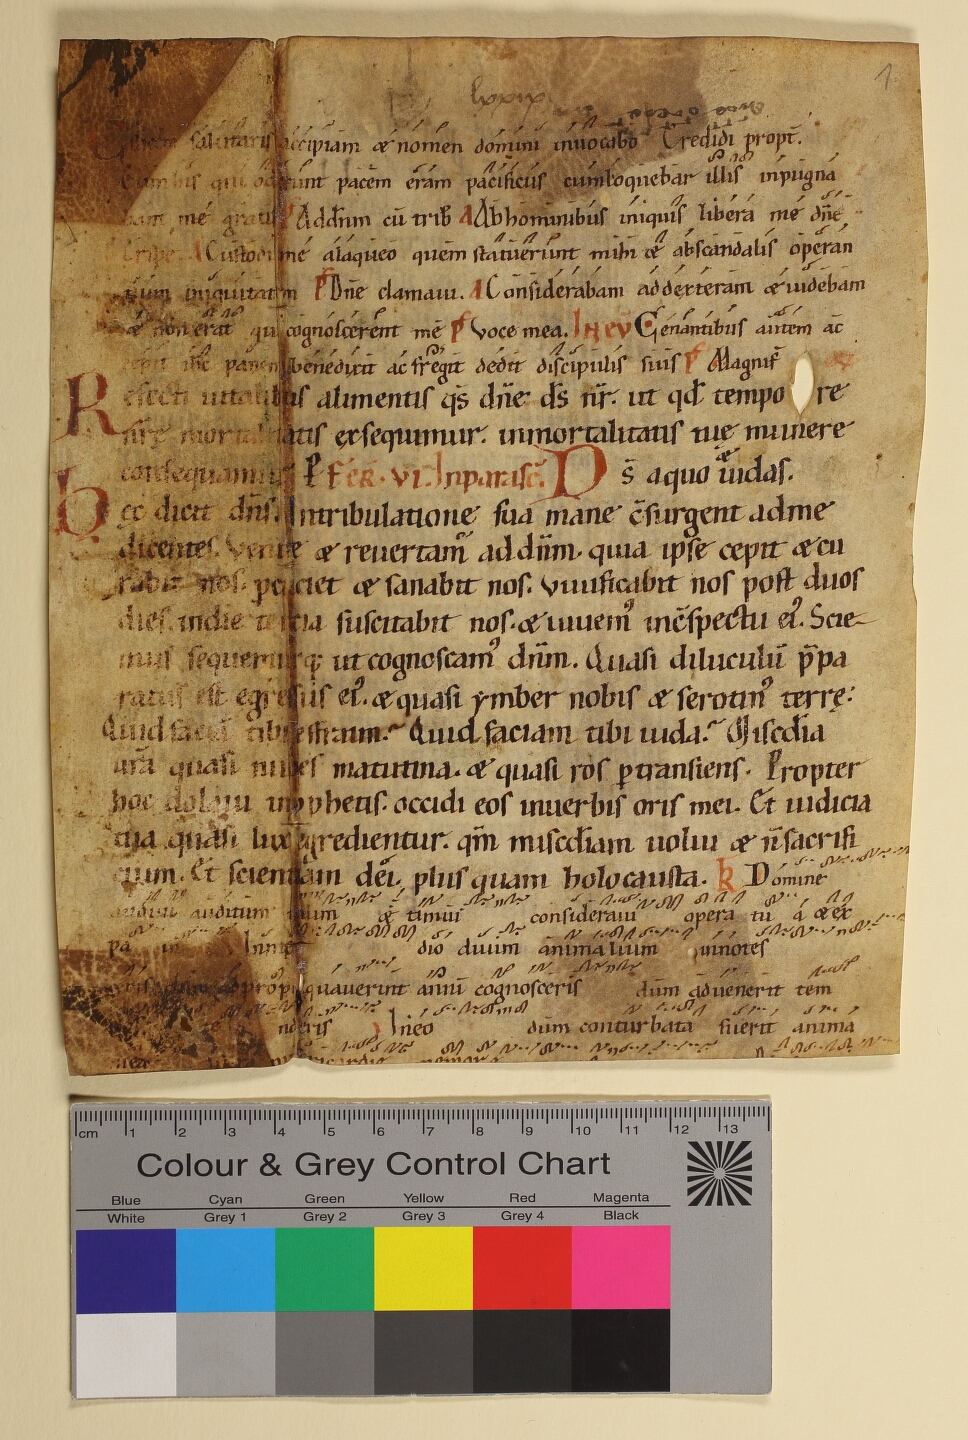 1
lxxix
Calicem salutaris accipiam & nomen domini inuocabo Credidi propt̄.
Cum his qui oderunt pacem eram pacificus cum loquebar illis inpugna
bant me gratis P Ad dn̄m cū trib A Ab hominibus iniquis libera me dn̄e
eripe A Custodi me a laqueo quem statuerunt mihi & ab scandalis operan
tium iniquitatem P Dn̄e clamaui. A Considerabam ad dexteram & uidebam
& non erat qui cognosceret me P Voce mea. In eu Cenantibus autem ac
cepit ihc panem benedixit ac fregit dedit discipulis suis P Magnif
Refecti uitalibus alimentis qs̄ dn̄e ds̄ nr̄. ut qd̄ tempo re
nr̄e mortalitatis exsequimur. inmortalitatis tuę munere
consequamur P FER. VI. In parasc̄. Ds̄ a quo & iudas.
Hęc dicit dn̄s. In tribulatione sua mane c̄surgent ad me
dicentes. Venite & reuertam ad dn̄m. quia ipse cepit & cu
rabit nos. percutiet & sanabit nos. Viuificabit nos post duos
dies. in die tercia suscitabit nos. & uiuem in c̄spectu ei. Scie
mus sequemurq; ut cognoscam dn̄m. Quasi diluculū p̄pa
ratus est egressus ei. & quasi ymber nobis & serotin terrę:
Quid faciā tibi effraim. Quid faciam tibi iuda. Misc̄dia
ur̄a quasi nubes matutina. & quasi ros p transiens. Propter
hoc dolaui in pphetis. occidi eos in uerbis oris mei. Et iudicia
tua quasi lux egredientur. qm̄ misc̄diam uolui & n̄ sacrifi
cium. Et scientiam dei, plus quam holocausta. R Domine
audiui auditum tuum & timui consideraui opera tu a & ex
pa In me dio duum animalium innotes
dum appropinquauerint anni cognosceris dum aduenerit tem
nderis In eo dum conturbata fuerit anima